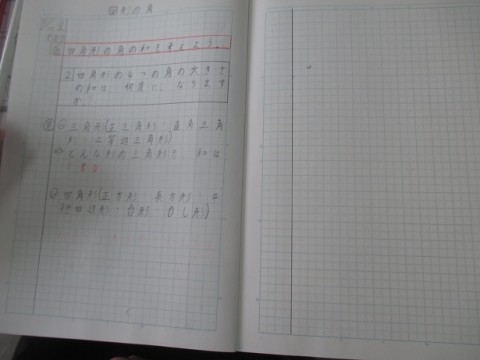 図形の角
四角形の角の和を考えよう。
2 四角形の4つの角の大きさ
の和は 何度に なります
か
三角形(正三角形・直角三角
形・二等辺三角形)
どんな形の三角形でも 和は
180
四角形(正方形・長方形・平
行四辺形・台形・ひし形)